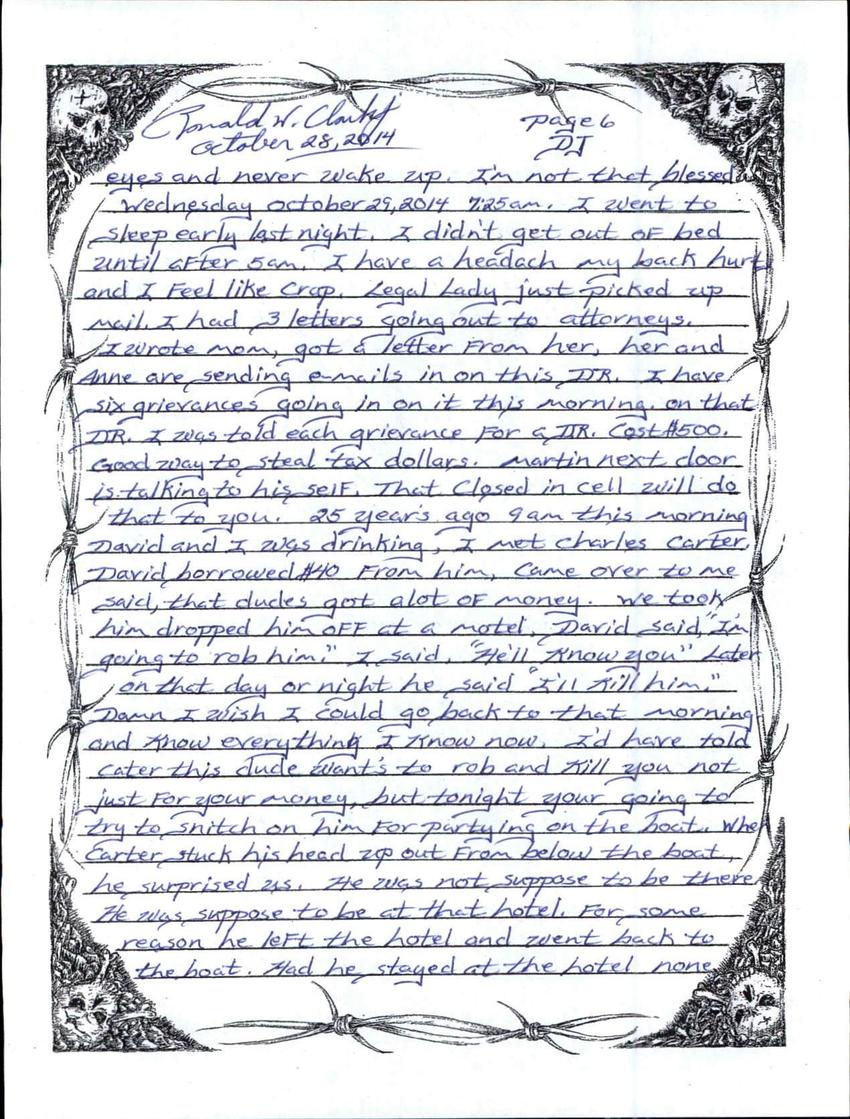 Ronald W. Clark Jr
October 28, 2014
Page 6
DJ
eyes and never wake up. I'm not that blessed.
Wednesday October 29, 2014 7:25am. I went to
sleep early last night. I didn't get out of bed
until after 5am. I have a headach my back hurt
and I feel like crap. Legal Lady just picked up
mail. I had 3 letters going out to attorneys.
I wrote mom, got a letter from her, her and
Anne are sending e-mails in on this DR. I have
six grievances going in on it this morning. on that
DR. I was told each grievance for a DR. Cost $500.
Good way to steal tax dollars. Martin next door
is talking to his self. That closed in cell will do
that to you. 25 year's ago 9am this morning
David and I was drinking, I met Charles Carter.
David borrowed $40 from him, came over to me
said, that dudes got alot of money. We took
him dropped him off at a motel. David said, "I'm
going to rob him." I said, "He'll know you" Later
on that day or night he said "I'll kill him."
Damn I wish I could go back to that morning
and know everything I know now. I'd have told
cater this dude want's to rob and kill you not
just for your money, but tonight your going to
try to snitch on him for partying on the boat. When
Carter stuck his head up out from below the boat,
he surprised us. He was not suppose to be there
He was suppose to be at that hotel. For some
reason he left the hotel and went back to
the boat. Had he stayed at the hotel none